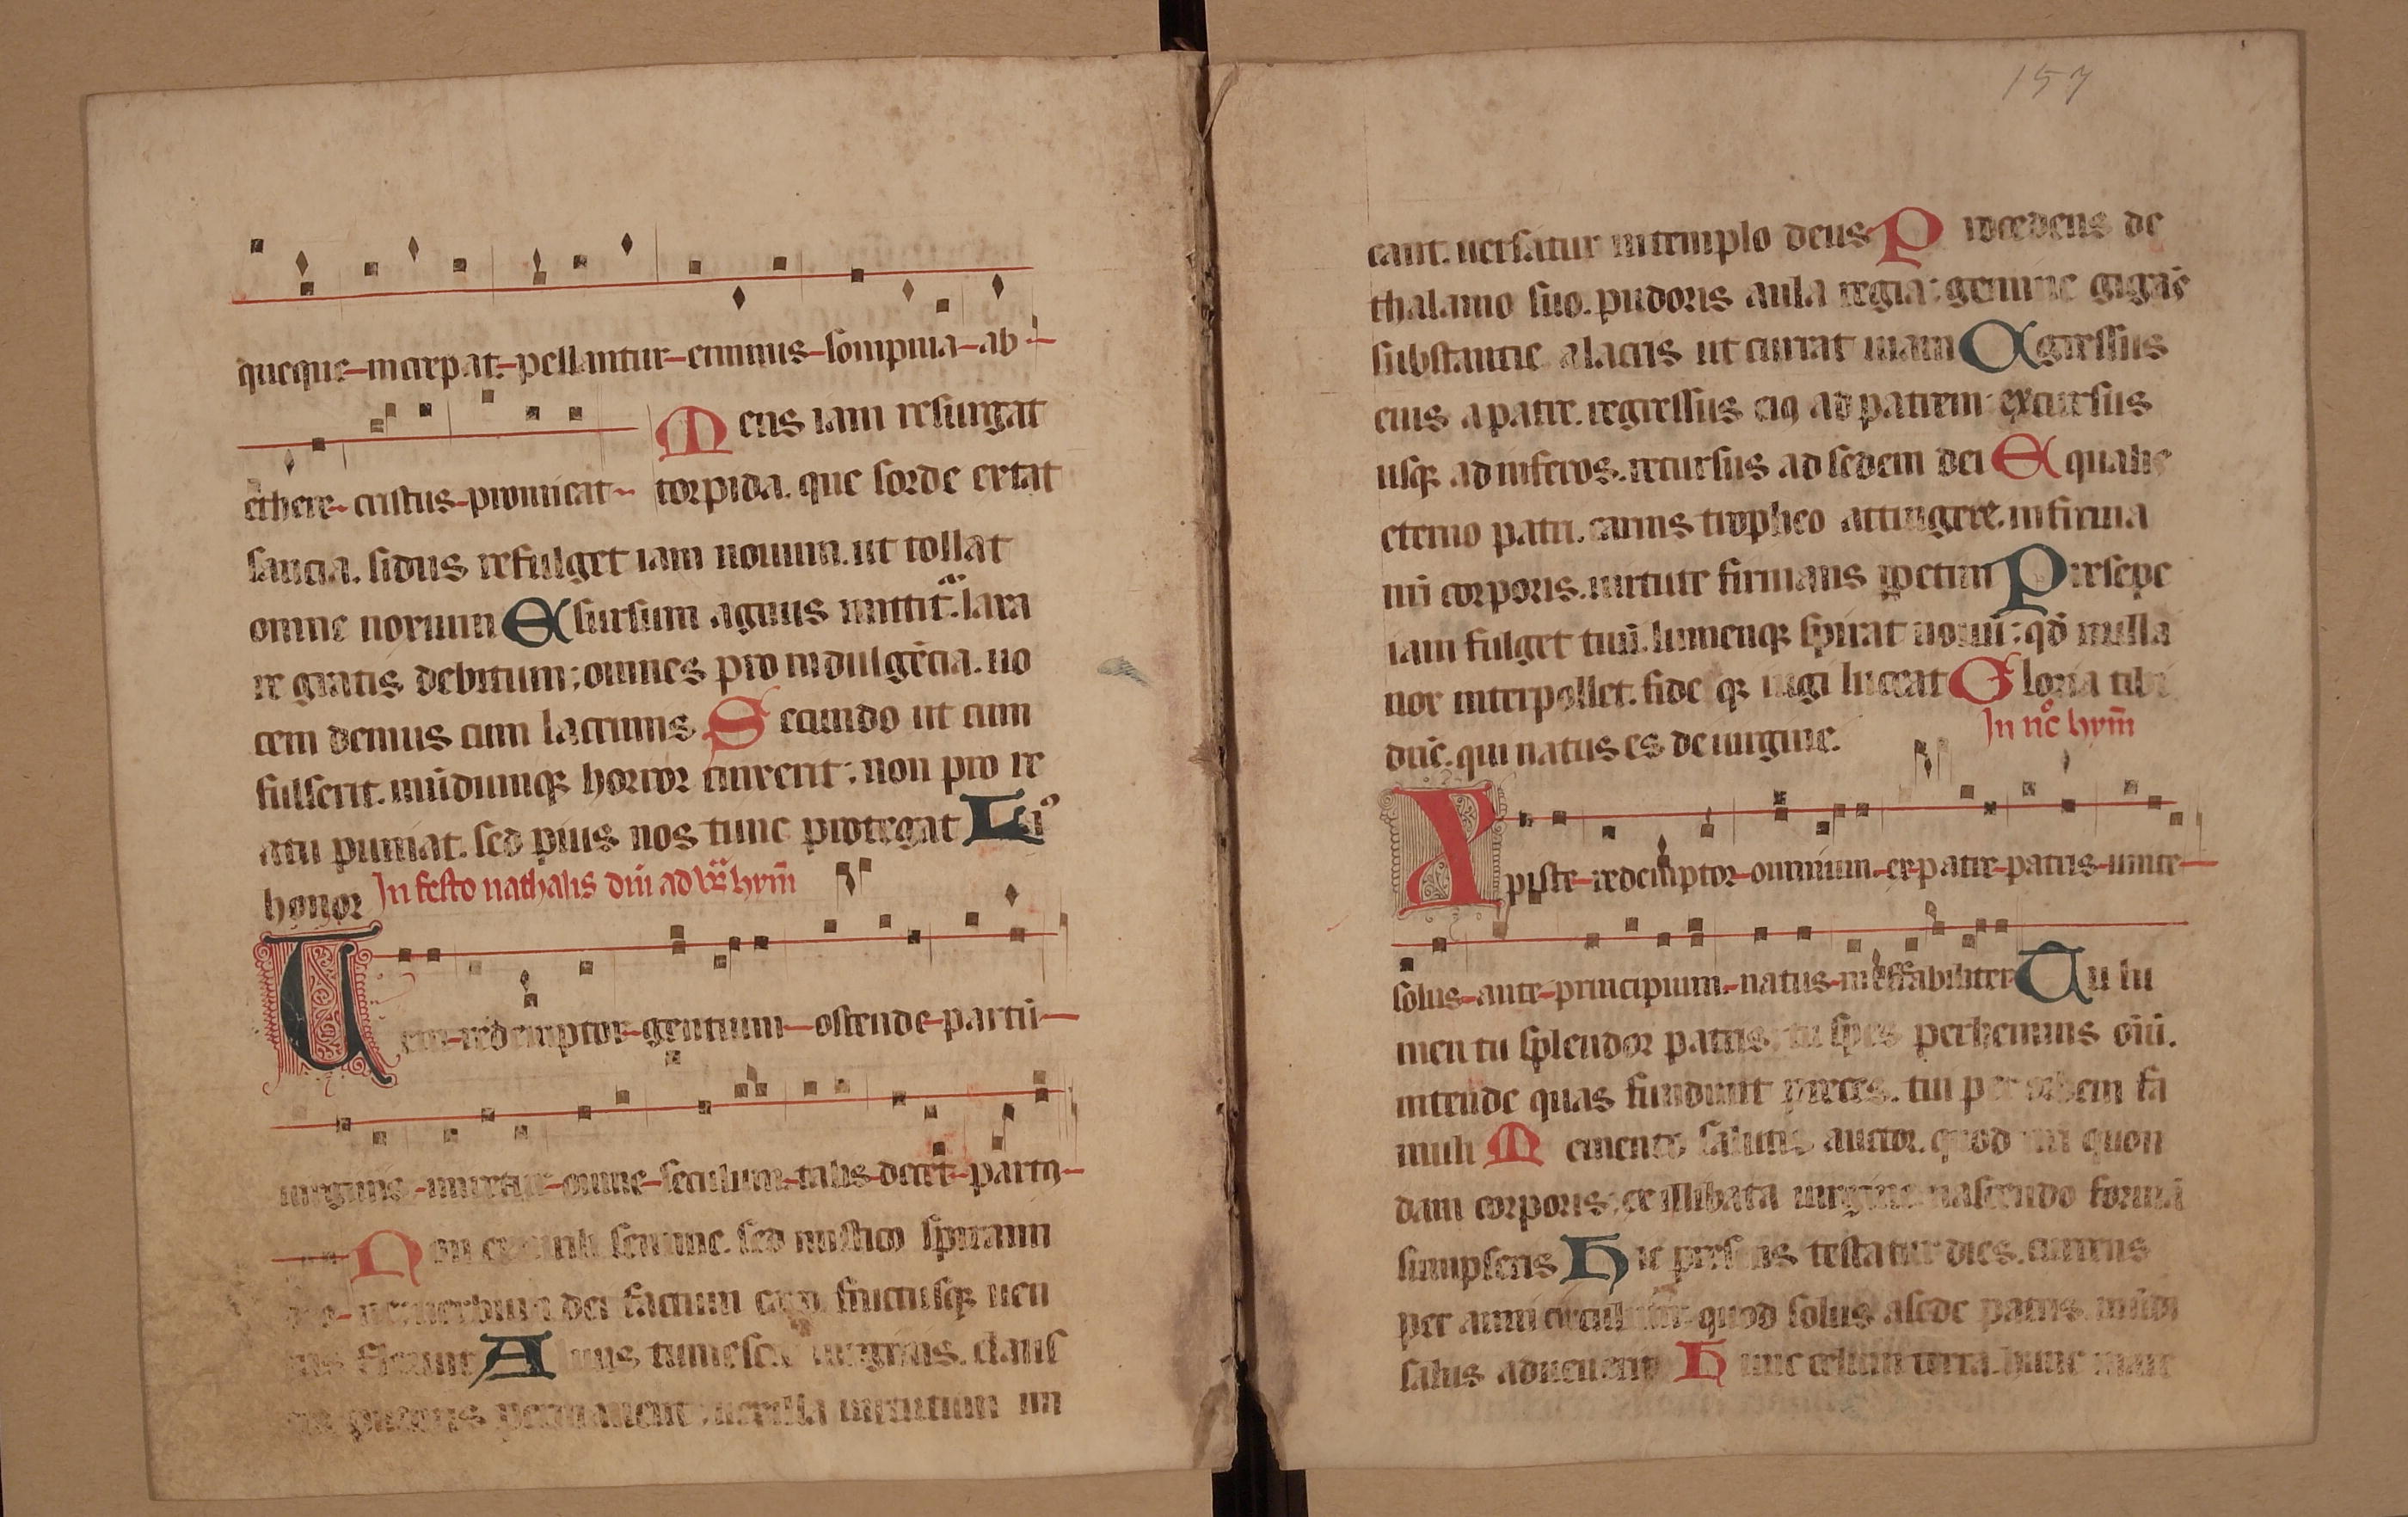 queque increpat. pellantur eminus sompnia ab
ethere cristus promicat
Mens iam resurgat
torpida. que sorde extat
saucia. sidus refulget iam nouum. ut tollat
omne noxium E sursum agnus mittitᷓ. laxa
re gratis debitum; omnes pro indulgẽcia. uo
cem demus cum lacrimis S ecundo ut cum
fulserit. mũdumqꝫ horror cinxerit; non pro re
atu puniat. sed pius nos tunc protegat
honor In festo nathalis dñi ad hym̃
Ueni redemptor gentium ostende partũ
uirginis miretur omne seculum talis decet partꝰ
Non ex uirili semine. sed mistico spiramin
uerbum dei factum caro. fructusqꝫ uen
tris floruit Aluus tumescit uirginis. claus
pudoris permanent; uexilla uirtutum mi
157
cant. uersatur in templo deus Procedens de
thalamo suo. pudoris aula regia; gemine gigãs
substancie alacris ut currat uiam Egressus
eius a patre. regressus eiꝰ ad patrem excursus
usqꝫ ad inferos. recursus ad sedem dei Equalis
eterno patri. carnis tropheo accingere. infirma
nr̃i corporis. uirtute firmans ꝑpetim Presepe
iam fulget tuũ. lumenqꝫ spirat nouũ; qd̃ nulla
nox interpollet. fide qꝫ iugi luceat Gloria tibi
dñe. qui natus es de uirgine.
In noc̃ hym̃
Xpiste redemptor omnium ex patre patris unice
solus ante principium. natus ineffabiliter Tu lu
men tu splendor patris, tu spes perhennis oĩu.
intende quas fundunt preces. tui per orbem fa
muli Memento salutis auctor. quod nr̃i quon
dam corporis; ex illibata uirgine nascendo formã
sumpseris Hic presens testatur dies. currens
per anni circulum quod solus a sede patris. mũdi
salus adueneris Hunc celum terra. hunc mare